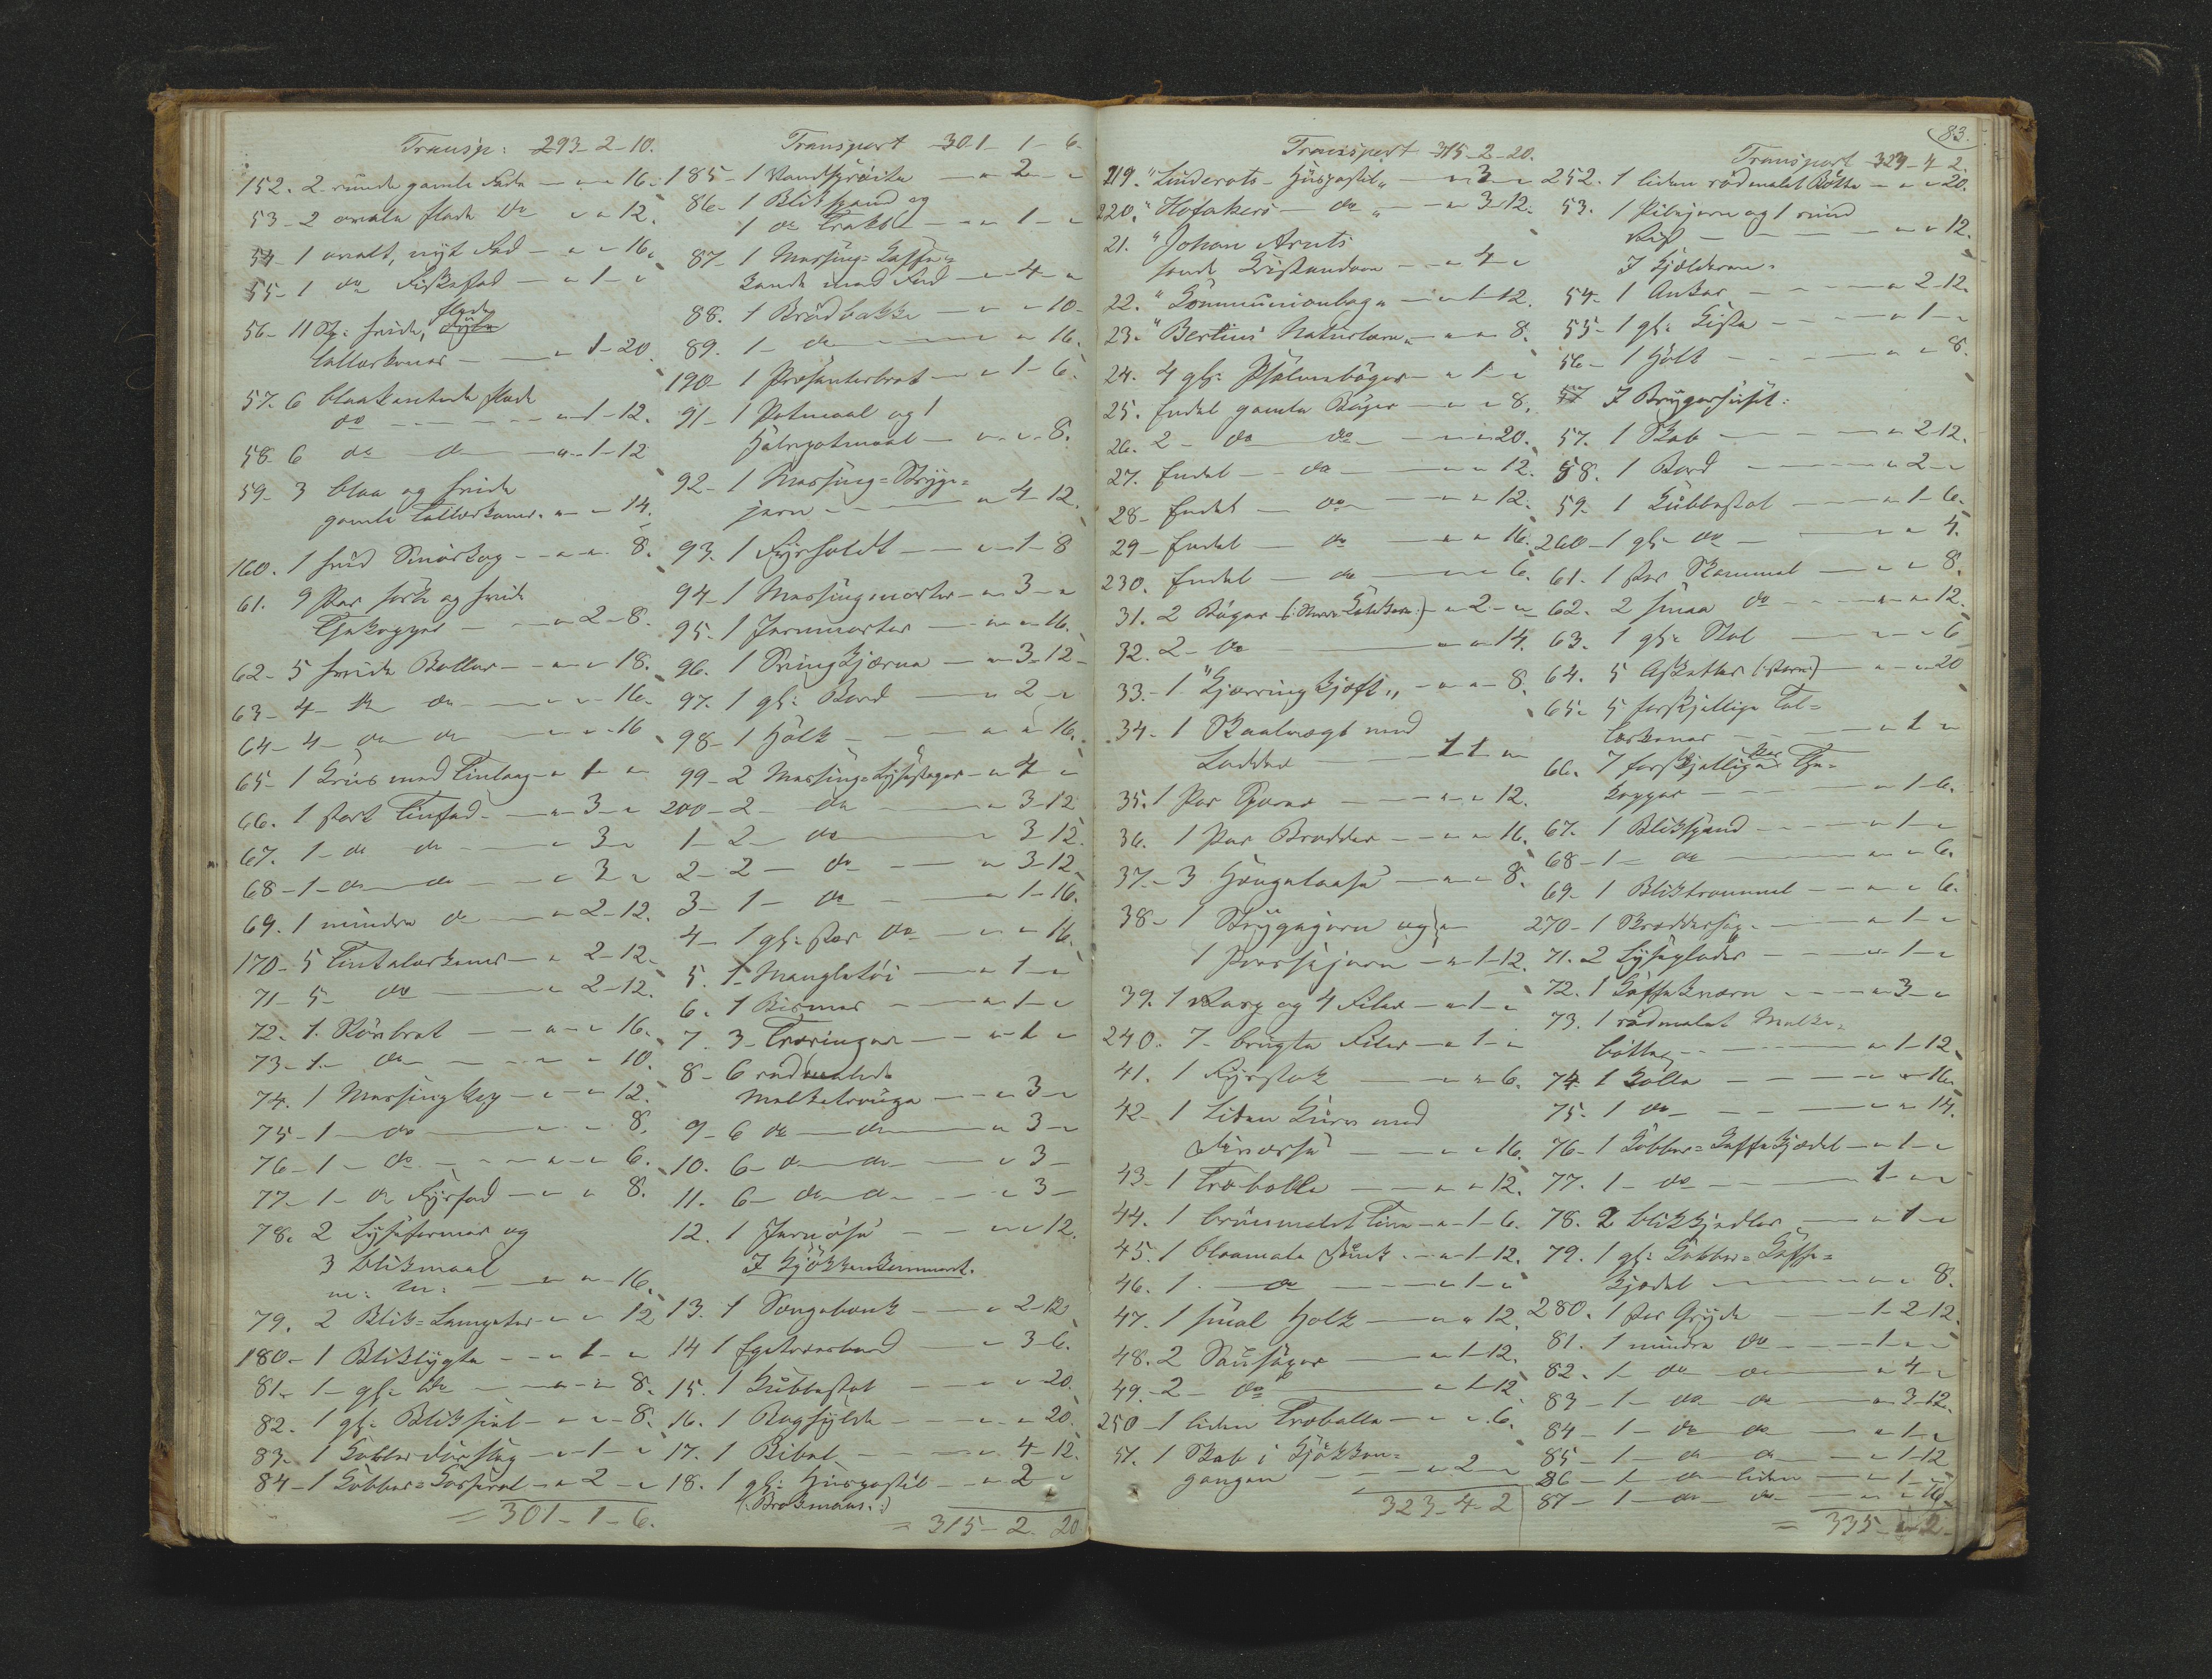 Transp: 293-2-10.
152. 2 runde gamle Fade - " - " 16.
53- 2 ovale flade do " - " 12.
54- 1 ovalt, nyt Fad - " - " 16.
55- 1 do Fiskefad - " 1 - "
flade
56- 11 St: hvide, dybe
Tallerkener - " 1-20.
57. 6 blaakantede flade
do - " 1-12.
58- 6 do do - " 1-12
59- 3 blaa og hvide
gamle Tallerkener - " - 14.
160. 1 hvid Smørkop - " - " 8.
61. 9 Par sorte og hvide
Thekopper - " 2-8.
62- 5 hvide Boller - " - " 18.
63- 4- do do - " - " 16.
64- 4- do do - " - " 16
65- 1 Kruus med Tinlaag - " 1 - "
66. 1 stort Tinfad - " 3 - "
67. 1- do do - " 3 - "
68- 1- do do - " 3 - "
69. 1 mindre do - " 2-12.
170- 5 Tintalerkener - " 2-12.
71- 5- do - " 2-12.
72- 1. Rørbret - " - " 16.
73- 1- do - " - " 10.
74. 1 Messingkop - " - " 12.
75- 1- do - " - " 8.
76- 1- do - " - " 6.
77- 1- do Fyrfad - " - " 8.
78. 2 Lyseformer og
3 Blikmaal
m: m: - " - " 16.
79. 2 Blik=Lampetter - " - " 12
180- 1 Bliklygte - " 1 - "
81- 1- gl: do - " - " 8.
82. 1 gl: Blik - " - " 8.
83- 1 Kobber Dørslag - " 1 - "
84- 1 Kobber= - " 2 - "
= 301-1-6.
Transport 301- 1- 6.
185- 1 Vandsprøite - " 2 - "
86- 1 Blikspand og
1 do Trakt - " 1 - "
87- 1 Messing=Kaffe=
kande med Fad - " 4 - "
88. 1 Brødbakke - " - " 10-
89. 1- do - " - " 16.
190- 1 Præsenterbret - " 1-6.
91- 1 Potmaal og 1
Halvpotmaal - " - " 8.
92- 1 Messing=Stryge=
jern - " 4-12.
93. 1 Fyrholdt - " 1-8
94- 1 Messingmorter - " 3 - "
95- 1 Jernmorter - " - " 16.
96. 1 Svingkjærne - " 3-12-
97. 1 gl: Bord - " 2 - "
98- 1 Holk - " - " 16.
99- 2 Messing=Lysestager - " 4 - "
200- 2- do - " 3-12
1- 2- do - " 3-12.
2- 2- do - " 3-12.
3- 1- do - " 1-16.
4- 1 gl: stor do - " - " 16.
5. 1 Mangletøi - " 1 - "
6. 1 Bismer - " 1 - "
7. 3 Træringer - " 1 - "
8- 6 rødmalede
Melketruge - " 3 - "
9- 6 do do - " 3 - "
10. 6- do do - " 3 -
11. 6- do do - " 3 -
12. 1 Jernøse - " - " 12.
I Kjøkkenkammeret.
13. 1 Sengebænk - " 2-12
14 1 Egetræesbord - " 3-6.
15. 1 Kubbestol - " - " 20.
16. 1 Boghylde - " - " 20.
17. 1 Bibel - " 4-12.
18. 1 gl: Huspostil - " 2 - "
(:Brokmans:)
= 315-2. 20
83.
Transport 315-2-20.
219. "Linderots Huspostil" - " 3 - "
220. "Hofakers do " - " 3-12.
21. "Johan Arnts
sande Kristendom - " 4 - "
22. "Kommunionbog" - " 1-12.
23. "Bertius Naturlære" - " - " 8.
24. 4 gl: Psalmebøger - " 1 - "
25. Endel gamle Bøger - " - " 8.
26. 2- do do - " - " 20.
27. Endel - do - " - " 12.
28- Endel - do - " - " 12.
29- Endel - do - " - " 16.
230. Endel - do - " - " 6.
31. 2 Bøger - " 2 - "
32. 2- do - " - " 14.
33- 1 "Kjærringkjæft" - " - " 8.
34- 1 Skaalvægt med
Lodder - 1 1 "
35. 1 Par Sporer - " - " 12.
36. 1 Par Brodder - " - " 16.
37- 3 Hængelaase - " - " 8.
38- 1 Strygejern og
1 Pressejern - " 1-12.
39. 1 Rasp og 4 Filer - " 1 - "
240. 7- brugte Filer - " 1 - "
41. 1 Fyrstok - " - " 6.
42- 1 Liden Kurv med
- " - " 16.
43- 1 Træbolle - " - " 12.
44. 1 brunmalet Tine - " 1-6.
45. 1 blaamalt Dunk - " 1-12.
46. 1 - do - " 1 - "
47. 1 smal Holk - " - " 12.
48. 2 Saugsager - " 1-12.
49- 2- do - " 1-12
250- 1 liden Træbolle - " - " 6.
51. 1 Skab i Kjøkken=
gangen - " 2 - "
323-4-2
Transport 323-4-2.
252. 1 liden rødmalet Bøtte - " - " 20.
53. 1 Pibejern og 1 rund
Rist - " - " 12.
I Kjelderen.
54- 1 Anker - " 2-12.
55- 1 gl: Kiste - " 1 - "
56- 1 Holk - " - " 8.
57 I Bryggerhuset:
57. 1 Skab - " 2-12.
58. 1 Bord - " 2 - "
59. 1 Kubbestol - " 1-6.
260- 1 gl: do - " - " 4.
61. 1 stor Skammel - " - " 8.
62. 2 smaa do - " - " 12.
63. 1 gl: Stol - " - " 6
64. 5 Asketter (:større:) - " - " 20
65. 5 forskjellige Tal=
lerkener - " 1 - "
Par
66. 7 forskjellige The=
kopper - " 1-6.
67. 1 Blikspand - " 1 - "
68- 1- do - " - " 6.
69- 1 Bliktrommel - " - " 6.
270- 1 Skreddersag - " 1 - "
71. 2 Lyseplader - " 1 - "
72. 1 Kaffekværn - " 3 - "
73. 1 rødmalet Melke=
bøtte - " 1-12.
74. 1 Kolle - " - " 16.
75. 1 do - " - " 14.
76- 1 Kobber=Kaffekjædel - " 1 - "
77. 1- do - 1 - "
78. 2 blikkjedler - " 1 - "
79. 1 gl: Kobber=Kaffe=
kjædel - " - " 8.
280. 1 stor Gryde - 1-2-12.
81. 1 mindre do - 1 - "
82. 1- do do - " 4 - "
83- 1- do do - " 3-12.
84- 1- do do - " 1 - "
85- 1- do do - " 1-12
86- 1- do liden - " 1 - "
87- 1- do do - " - " 16.
= 335- " - 2-